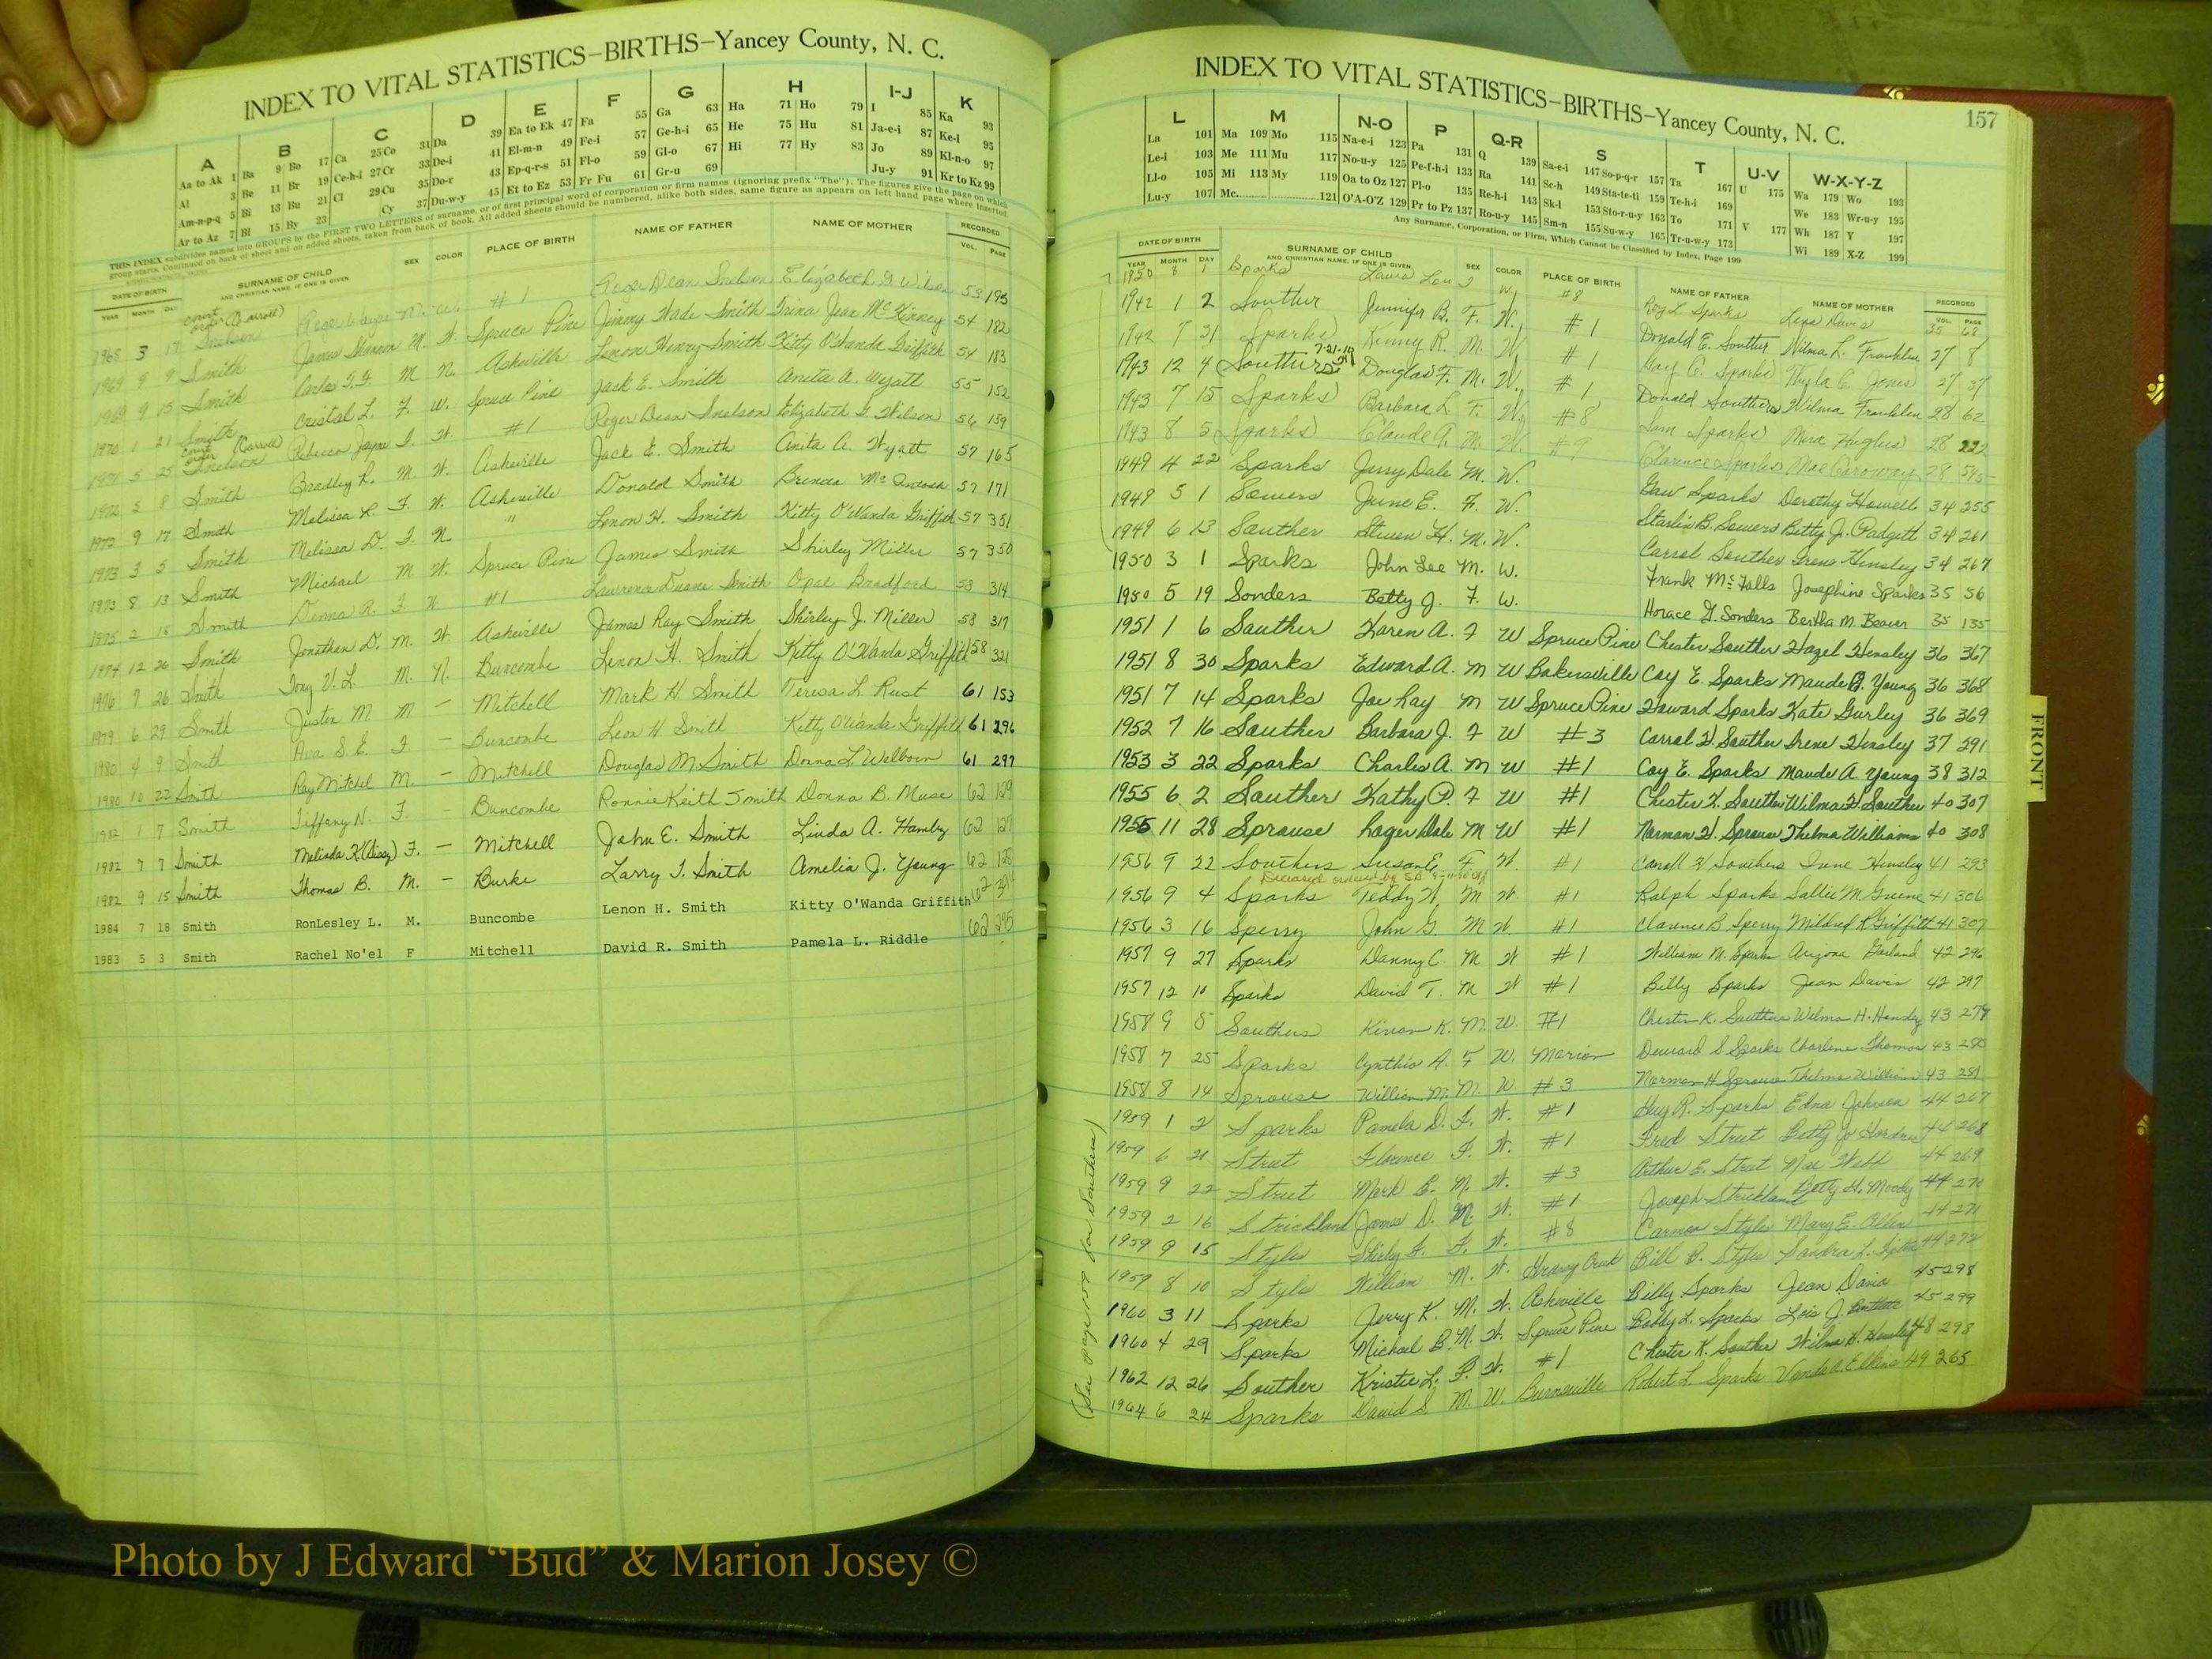 INDEX TO VITAL STATISTICS–BIRTHS–Yancey County, N. C.
A B C D E F G H I-J K
Aa to Ak 1 Ba 9 Bo 17 Ca 25 Co 31 Da 39 Ea to Ek 47 Fa 55 Ga 63 Ha 71 Ho 79 I 85 Ka 93
Al 3 Be 11 Br 19 Ce-h-i 27 Cr 33 De-i 41 El-m-n 49 Fe-i 57 Ge-h-i 65 He 75 Hu 81 Ja-e-i 87 Ke-i 95
Am-n-p-q 5 Bi 13 Bu 21 Cl 29 Cu 35 Do-r 43 Ep-q-r-s 51 Fl-o 59 Gl-o 67 Hi 77 Hy 83 Jo 89 Kl-n-o 97
Ar to Az 7 Bl 15 By 23 Cy 37 Du-w-y 45 Et to Ez 53 Fr Fu 61 Gr-u 69 Ju-y 91 Kr to Kz 99
THIS INDEX subdivides names into GROUPS by the FIRST TWO LETTERS of surname, or of first principal word of corporation or firm names (ignoring prefix "The"). The figures give the page on which
group starts. Continued on back of sheet and on added sheets, taken from back of book. All added sheets should be numbered, alike both sides, same figure as appears on left hand page where inserted.
DATE OF BIRTH SURNAME OF CHILD SEX COLOR PLACE OF BIRTH NAME OF FATHER NAME OF MOTHER RECORDED
YEAR MONTH DAY AND CHRISTIAN NAME, IF ONE IS GIVEN VOL. PAGE
court order (Carroll)
1968 3 17 Snelson Roger Wayne M. #1 Roger Dean Snelson Elizabeth G. Wilson 53 195
1969 9 9 Smith James Shannon M. W. Spruce Pine Jimmy Wade Smith Trina Jean McKinney 54 182
1969 9 15 Smith Carlos M N. Asheville Lenon Henry Smith Kitty O'Wanda Griffith 54 183
1970 1 21 Smith Cristal L. F. W. Spruce Pine Jack E. Smith Anita A. Wyatt 55 152
court order (Carroll)
1971 5 25 Snelson Rebecca Jayne F. W. #1 Roger Dean Snelson Elizabeth G. Wilson 56 159
1972 5 8 Smith Bradley K. M. W. Asheville Jack E. Smith Anita A. Wyatt 57 165
1972 9 17 Smith Melissa F. W. Asheville Donald Smith Brenda McIntosh 57 171
1973 3 5 Smith Melissa D. F. N. " Lenon H. Smith Kitty O'Wanda Griffith 57 351
1973 8 13 Smith Michael M W. Spruce Pine James Smith Shirley Miller 57 350
1975 2 18 Smith Donna R. F. W #1 Lawrence Duane Smith Opal Bradford 58 314
1974 12 26 Smith Jonathan D. M. W. Asheville James Ray Smith Shirley J. Miller 58 317
1976 7 26 Smith Tony V. L. M. N. Buncombe Lenon H. Smith Kitty O'Wanda Griffith 58 321
1979 6 29 Smith Justin M M – Mitchell Mark H. Smith Teresa L Rust 61 153
1980 4 9 Smith Ava S. E. F – Buncombe Leon H Smith Kitty O'Wanda Griffith 61 296
1980 10 22 Smith Ray Mitchel M. – Mitchell Douglas M. Smith Donna L Welborn 61 297
1982 1 7 Smith Tiffany N. F. – Buncombe Ronnie Keith Smith Donna B. Muse 62 129
1982 7 7 Smith Melinda K (Sissy) F. – Mitchell John E. Smith Linda A. Hamby 62 127
1982 9 15 Smith Thomas B. M. – Burke Larry T. Smith Amelia J. Young 62 128
1984 7 18 Smith RonLesley L. M. Buncombe Lenon H. Smith Kitty O'Wanda Griffith 62
1983 5 3 Smith Rachel No'el F Mitchell David R. Smith Pamela L. Riddle 62 295
INDEX TO VITAL STATISTICS–BIRTHS–Yancey County, N. C.
157
L M N-O P Q-R S T U-V W-X-Y-Z
La 101 Ma 109 Mo 115 Na-e-i 123 Pa 131 Q 139 Sa-e-i 147 So-p-q-r 157 Ta 167 U 175 Wa 179 Wo 193
Le-i 103 Me 111 Mu 117 No-u-y 125 Pe-f-h-i 133 Ra 141 Sc-h 149 Sta-te-ti 159 Te-h-i 169 We 183 Wr-u-y 195
Ll-o 105 Mi 113 My 119 Oa to Oz 127 Pl-o 135 Re-h-i 143 Sk-l 153 Sto-r-u-y 163 To 171 V 177 Wh 187 Y 197
Lu-y 107 Mc 121 O'A-O'Z 129 Pr to Pz 137 Ro-u-y 145 Sm-n 155 Su-w-y 165 Tr-u-w-y 173 Wi 189 X-Z 199
Any Surname, Corporation, or Firm, Which Cannot be Classified by Index, Page 199
DATE OF BIRTH SURNAME OF CHILD SEX COLOR PLACE OF BIRTH NAME OF FATHER NAME OF MOTHER RECORDED
YEAR MONTH DAY AND CHRISTIAN NAME, IF ONE IS GIVEN VOL. PAGE
1950 8 1 Sparks Laura Lou F W. #8 Roy L. Sparks Lena Davis 35 68
1942 1 2 Souther Jennifer B. F. W. #1 Donald E. Souther Wilma L. Franklin 27 8
1942 7 31 Sparks Kenny R. M. W #1 Gay C. Sparks Thyla C. Jones 27 37
7-21-10
1943 12 4 Southers Douglas F. M. W. #1 Donald Southers Wilma Franklin 28 62
1943 7 15 Sparks Barbara L F. W. #8 Sam Sparks Mira Hughes 28 222
1943 8 5 Sparks Claude A. M. W. #9 Clarence Sparks Mae Ceroway 28 595
1949 4 22 Sparks Jerry Dale M. W. Gaw Sparks Dorothy Howell 34 255
1949 5 1 Sowers June E. F. W. Starlin B. Sowers Betty J. Padgett 34 261
1949 6 13 Souther Steven H. M. W. Carrol Souther Irene Hensley 34 267
1950 3 1 Sparks John Lee M. W. Frank McFalls Josephine Sparks 35 56
1950 5 19 Sonders Betty J. F. W. Horace G. Sonders Bertha M. Beaver 35 135
1951 1 6 Souther Karen A. F W Spruce Pine Chester Souther Hazel Hensley 36 367
1951 8 30 Sparks Edward A. M W Bakersville Coy E. Sparks Maude A. Young 36 368
1951 7 14 Sparks Joe Ray M W Spruce Pine Howard Sparks Kate Gurley 36 369
1952 7 16 Souther Barbara J. F W #3 Carrol H. Souther Irene Hensley 37 291
1953 3 22 Sparks Charles A. M W #1 Coy E. Sparks Maude A. Young 38 312
1955 6 2 Souther Kathy P. F W #1 Chester K. Souther Wilma H. Souther 40 307
1955 11 28 Sprouse Roger Dale M W #1 Norman H. Sprouse Thelma Williams 40 308
1956 9 22 Southers Susan E. F W #1 Carroll H Southers Irene Hensley 41 293
1956 9 4 Sparks Teddy W. M W. #1 Ralph Sparks Sallie M Greene 41 306
1956 3 16 Sperry John G. M W. #1 Clarence B Sperry Mildred R Griffith 41 307
1957 9 27 Sparks Danny C. M W #1 William M. Sparks Arizona Garland 42 296
1957 12 10 Sparks David T. M W #1 Billy Sparks Jean Davis 42 297
1958 9 5 Southers K. M. W. #1 Chester K. Southers Wilma H. Hensley 43 279
1958 7 25 Sparks Cynthia A. F W. Marion Deward S Sparks Charlene Thomas 43 280
1958 8 14 Sprouse William M. M. W. #3 Norman H Sprouse Thelma Williams 43 281
1959 1 2 Sparks Pamela D. F. W. #1 Guy R. Sparks Edna Johnson 44 267
1959 6 21 Street Florence F. W. #1 Fred Street Betty Jo 44 268
1959 9 22 Street Mark E. M. W. #3 Arthur E. Street Mae Webb 44 269
1959 2 16 Strickland James D. M. W. #1 Joseph Strickland Betty H. Moody 44 270
1959 9 15 Styles Shirley F. F. W. #8 Carmon Styles Mary E. Allen 44 271
1959 8 10 Styles William M. W. Grassy Creek Bill B. Styles Sandra L. 44 272
1960 3 11 Sparks Jerry K. M. W. Asheville Billy Sparks Jean Davis 45 298
1960 4 29 Sparks Michael B. M. W. Spruce Pine Bobby L. Sparks Lois J. 45 299
1962 12 26 Souther Kristie L. F. W. #1 Chester K. Souther Wilma H. Hensley 48 298
1964 6 24 Sparks David S. M. W. Burnsville Robert L Sparks Elkins 49 265
(See page for Southers)
FRONT
Photo by J Edward “Bud” & Marion Josey ©